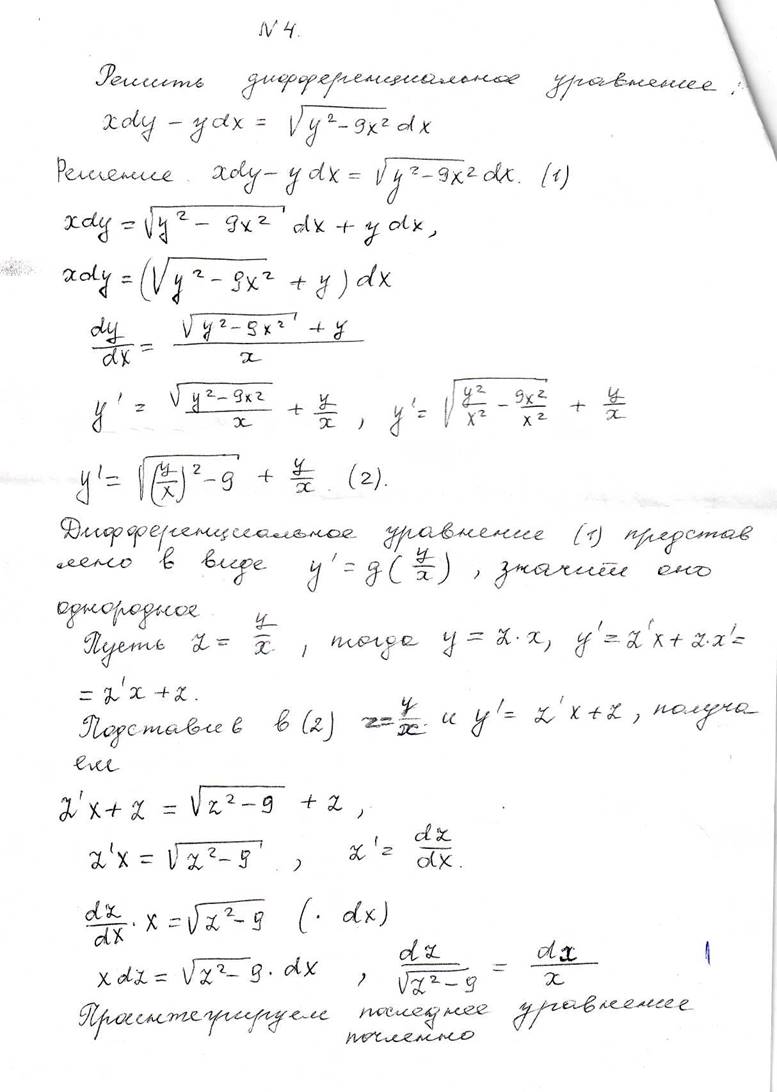 N 4.
Решить дифференциальное уравнение:
xdy − ydx = √(y² − 9x²) dx
Решение. xdy − ydx = √(y² − 9x²) dx. (1)
xdy = √(y² − 9x²) dx + y dx,
xdy = (√(y² − 9x²) + y) dx
dy/dx = (√(y² − 9x²) + y)/x
y' = √(y² − 9x²)/x + y/x , y' = √(y²/x² − 9x²/x²) + y/x
y' = √((y/x)² − 9) + y/x. (2).
Дифференциальное уравнение (1) представ
лено в виде y' = g(y/x), значит оно
однородное.
Пусть z = y/x, тогда y = z·x, y' = z'x + z·x' =
= z'x + z.
Подставив в (2) z = y/x и y' = z'x + z, получа
ем
z'x + z = √(z² − 9) + z,
z'x = √(z² − 9) , z' = dz/dx.
dz/dx · x = √(z² − 9) (· dx)
xdz = √(z² − 9) · dx , dz/√(z² − 9) = dx/x
Проинтегрируем последнее уравнение
почленно